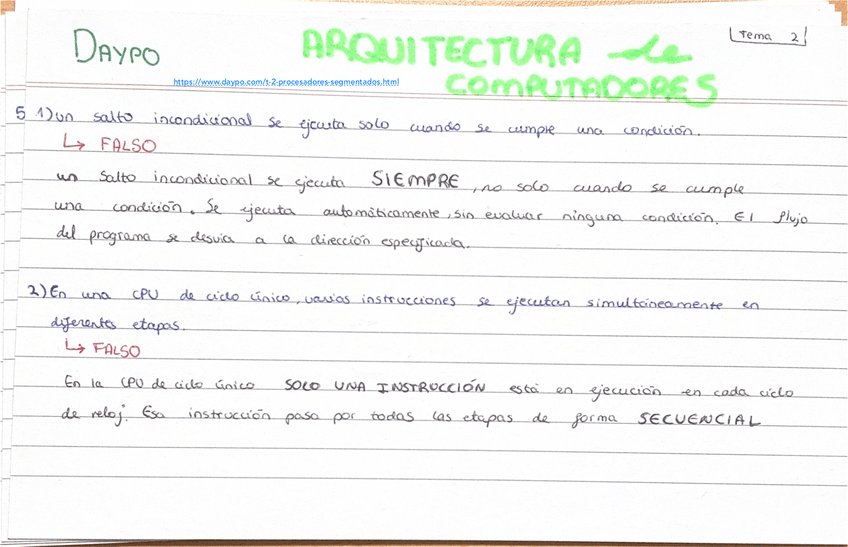 DAYPO
ARQUITECTURA de
COMPUTADORES
Tema 2
https://www.daypo.com/t-2-procesadores-segmentados.html
5 1) Un salto incondicional se ejecuta solo cuando se cumple una condición.
↳ FALSO
un salto incondicional se ejecuta SIEMPRE, no solo cuando se cumple
una condición. Se ejecuta automáticamente, sin evaluar ninguna condición. El flujo
del programa se desvia a la dirección especificada.
2) En una CPU de ciclo único, varias instrucciones se ejecutan simultáneamente en
diferentes etapas.
↳ FALSO
En la CPU de ciclo único SOLO UNA INSTRUCCIÓN está en ejecución en cada ciclo
de reloj. Esa instrucción pasa por todas las etapas de forma SECUENCIAL